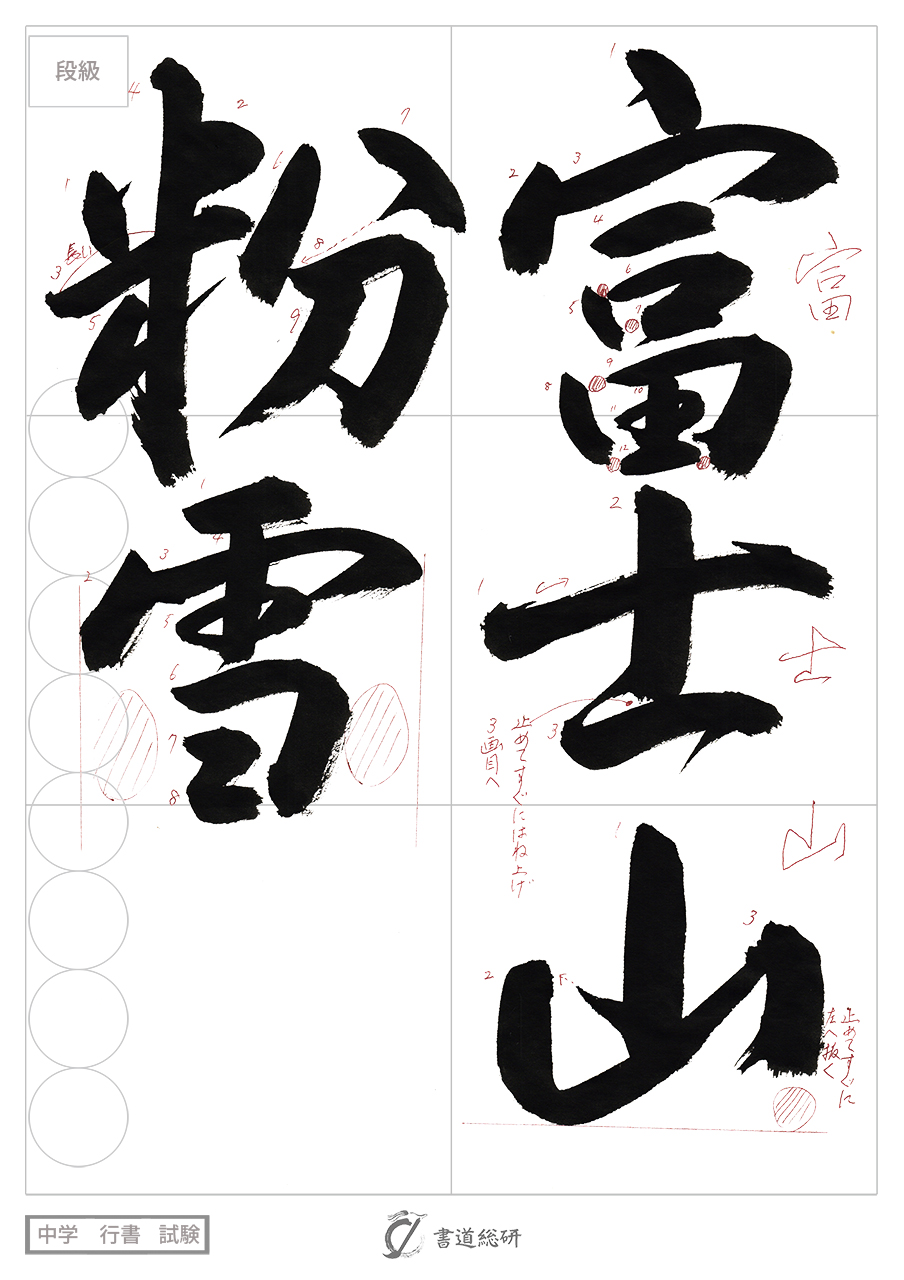 富士山
粉雪
段級
長い
止めてすぐにはね上げ
3画目へ
止めてすぐに
左へ抜く
富
士
山
中学 行書 試験
書道総研